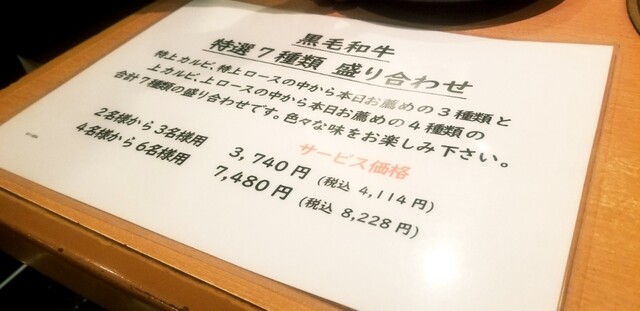 黒毛和牛
特選7種類 盛り合わせ
特上カルビ、特上ロースの中から本日お薦めの3種類と
上カルビ、上ロースの中から本日お薦めの4種類の
合計7種類の盛り合わせです。色々な味をお楽しみ下さい。
サービス価格
2名様から3名様用 3,740円 (税込 4,114円)
4名様から6名様用 7,480円 (税込 8,228円)